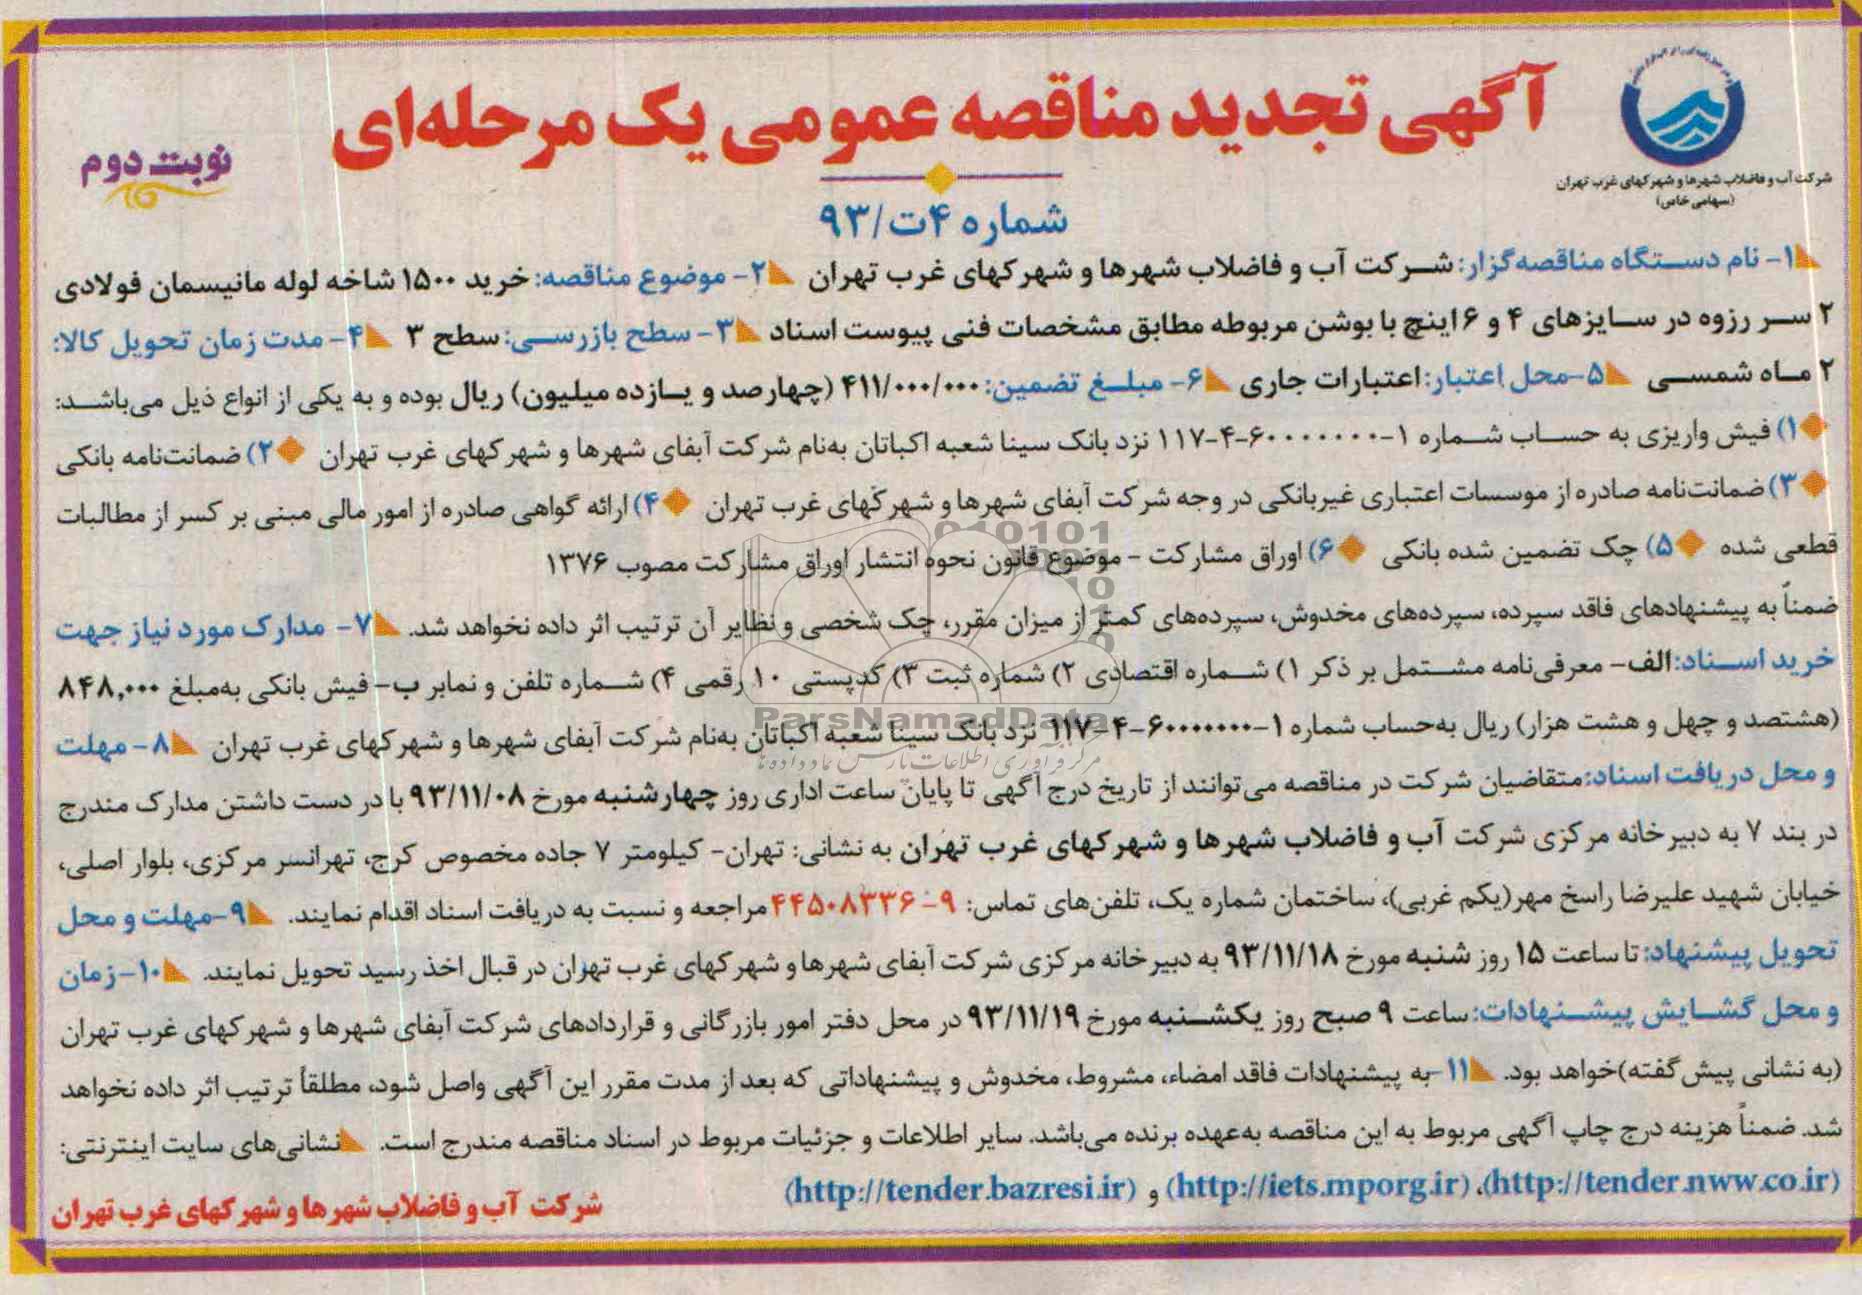 آگهی تجدید مناقصه عمومی یک مرحله‌ای
نوبت دوم
شرکت آب و فاضلاب شهرها و شهرکهای غرب تهران
(سهامی خاص)
شماره ۴ت/۹۳
۱- نام دستگاه مناقصه‌گزار: شرکت آب و فاضلاب شهرها و شهرکهای غرب تهران ۲- موضوع مناقصه: خرید ۱۵۰۰ شاخه لوله مانیسمان فولادی
۲ سر رزوه در سایزهای ۴ و ۶ اینچ با بوشن مربوطه مطابق مشخصات فنی پیوست اسناد ۳- سطح بازرسی: سطح ۳ ۴- مدت زمان تحویل کالا:
۲ ماه شمسی ۵-محل اعتبار: اعتبارات جاری ۶- مبلغ تضمین: ۴۱۱/۰۰۰/۰۰۰ (چهارصد و یازده میلیون) ریال بوده و به یکی از انواع ذیل می‌باشد:
۱) فیش واریزی به حساب شماره ۱-۶۰۰۰۰۰۰۰-۴-۱۱۷ نزد بانک سینا شعبه اکباتان به‌نام شرکت آبفای شهرها و شهرکهای غرب تهران ۲) ضمانت‌نامه بانکی
۳) ضمانت‌نامه صادره از موسسات اعتباری غیربانکی در وجه شرکت آبفای شهرها و شهرکهای غرب تهران ۴) ارائه گواهی صادره از امور مالی مبنی بر کسر از مطالبات
قطعی شده ۵) چک تضمین شده بانکی ۶) اوراق مشارکت - موضوع قانون نحوه انتشار اوراق مشارکت مصوب ۱۳۷۶
ضمناً به پیشنهادهای فاقد سپرده، سپرده‌های مخدوش، سپرده‌های کمتر از میزان مقرر، چک شخصی و نظایر آن ترتیب اثر داده نخواهد شد. ۷- مدارک مورد نیاز جهت
خرید اسناد: الف- معرفی‌نامه مشتمل بر ذکر ۱) شماره اقتصادی ۲) شماره ثبت ۳) کدپستی ۱۰ رقمی ۴) شماره تلفن و نمابر ب- فیش بانکی به‌مبلغ ۸۴۸,۰۰۰
(هشتصد و چهل و هشت هزار) ریال به‌حساب شماره ۱-۶۰۰۰۰۰۰۰-۴-۱۱۷ نزد بانک سینا شعبه اکباتان به‌نام شرکت آبفای شهرها و شهرکهای غرب تهران ۸- مهلت
و محل دریافت اسناد: متقاضیان شرکت در مناقصه می‌توانند از تاریخ درج آگهی تا پایان ساعت اداری روز چهارشنبه مورخ ۹۳/۱۱/۰۸ با در دست داشتن مدارک مندرج
در بند ۷ به دبیرخانه مرکزی شرکت آب و فاضلاب شهرها و شهرکهای غرب تهران به نشانی: تهران- کیلومتر ۷ جاده مخصوص کرج، تهرانسر مرکزی، بلوار اصلی،
خیابان شهید علیرضا راسخ مهر(یکم غربی)، ساختمان شماره یک، تلفن‌های تماس: ۹-۴۴۵۰۸۳۳۶ مراجعه و نسبت به دریافت اسناد اقدام نمایند. ۹-مهلت و محل
تحویل پیشنهاد: تا ساعت ۱۵ روز شنبه مورخ ۹۳/۱۱/۱۸ به دبیرخانه مرکزی شرکت آبفای شهرها و شهرکهای غرب تهران در قبال اخذ رسید تحویل نمایند. ۱۰-زمان
و محل گشایش پیشنهادات: ساعت ۹ صبح روز یکشنبه مورخ ۹۳/۱۱/۱۹ در محل دفتر امور بازرگانی و قراردادهای شرکت آبفای شهرها و شهرکهای غرب تهران
(به نشانی پیش گفته)خواهد بود. ۱۱-به پیشنهادات فاقد امضاء، مشروط، مخدوش و پیشنهاداتی که بعد از مدت مقرر این آگهی واصل شود، مطلقاً ترتیب اثر داده نخواهد
شد. ضمناً هزینه درج چاپ آگهی مربوط به این مناقصه به‌عهده برنده می‌باشد. سایر اطلاعات و جزئیات مربوط در اسناد مناقصه مندرج است. نشانی‌های سایت اینترنتی:
(http://tender.nww.co.ir)، (http://iets.mporg.ir) و (http://tender.bazresi.ir)
شرکت آب و فاضلاب شهرها و شهرکهای غرب تهران
ParsNamadData
مرکز فرآوری اطلاعات پارس نماد داده‌ها